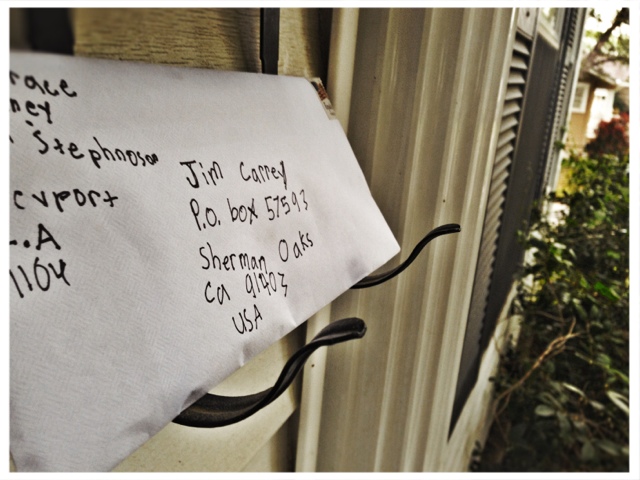 race
ney
Stephnoson
cvport
L.A
1104
Jim Carrey
P.O. box 57593
Sherman Oaks
Ca 91403
USA